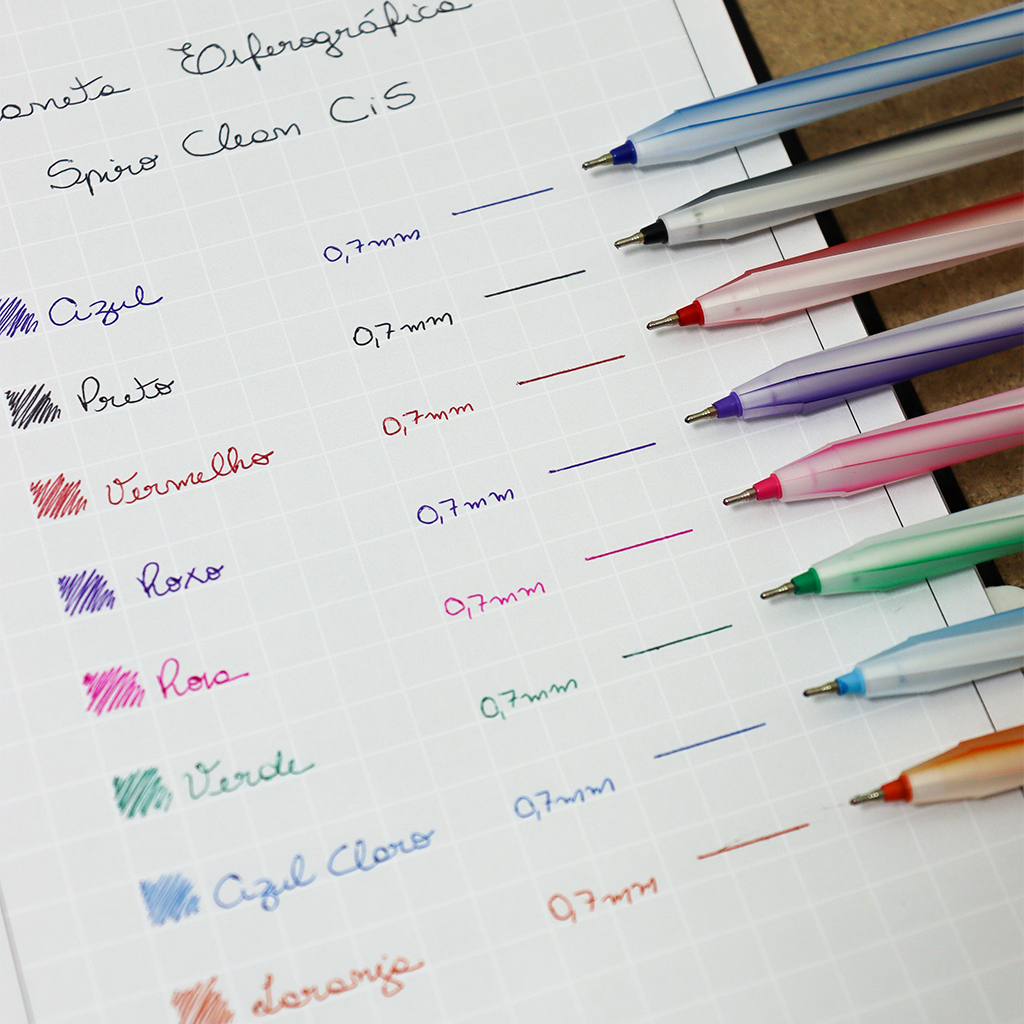 aneta Esferográfica
Spiro Clean CiS
Azul 0,7mm
Preto 0,7mm
Vermelho 0,7mm
Roxo 0,7mm
Rosa 0,7mm
Verde 0,7mm
Azul Claro 0,7mm
Laranja 0,7mm